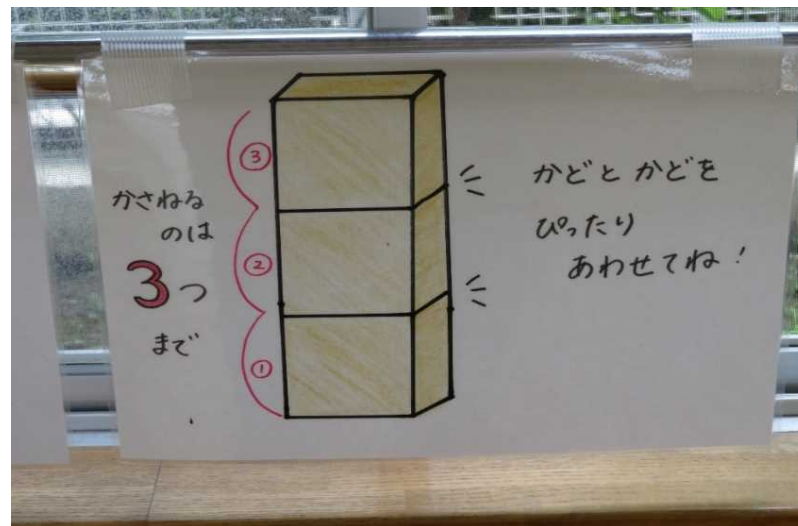 かさねる
のは
3つ
まで
③
②
①
かどと かどを
ぴったり
あわせてね!